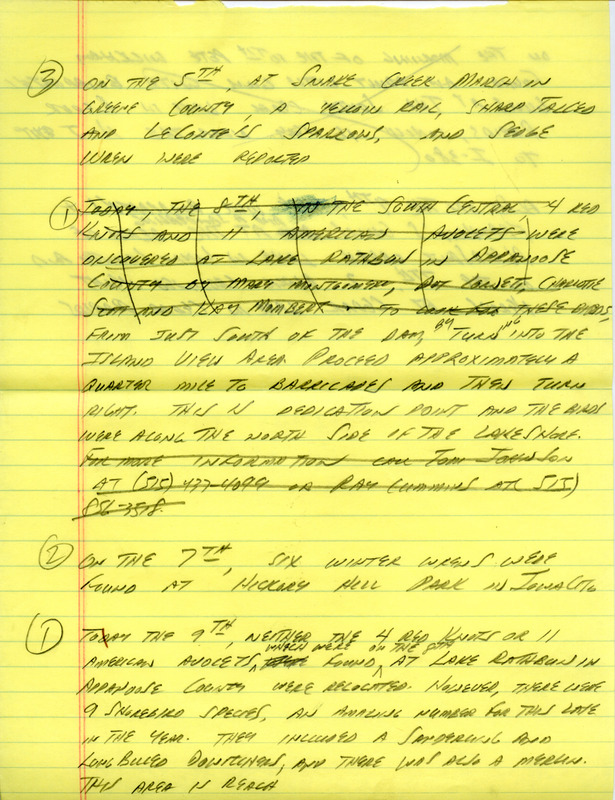 ③ ON THE 5TH, AT SNAKE CREEK MARSH IN
GREENE COUNTY, A YELLOW RAIL, SHARP TAILED
AND LECONTE'S SPARROWS, AND SEDGE
WREN WERE REPORTED
① TODAY, THE 8TH, IN THE SOUTH CENTRAL, 4 RED
KNOTS AND 11 AMERICAN AVOCETS WERE
UNCOVERED AT LAKE RATHBUN IN APPANOOSE
COUNTY BY MARY MONTGOMERY, CHARLOTTE
AND RAY. TO LOOK FOR THESE BIRDS,
FROM JUST SOUTH OF THE DAM, BY TURNING INTO THE
ISLAND VIEW AREA PROCEED APPROXIMATELY A
QUARTER MILE TO BARRICADES AND THEN TURN
RIGHT. THIS IS DEDICATION POINT AND THE BIRDS
WERE ALONG THE NORTH SIDE OF THE LAKESHORE.
FOR MORE INFORMATION CALL TOM JOHNSON
AT (515) 437-4099 OR RAY CUMMINS AT 515)
856-3518.
② ON THE 7TH, SIX WINTER WRENS WERE
FOUND AT HICKORY HILL PARK IN IOWA CITY
① TODAY THE 9TH, NEITHER THE 4 RED KNOTS OR 11
AMERICAN AVOCETS, WHICH WERE FOUND ON THE 8TH, AT LAKE RATHBUN IN
APPANOOSE COUNTY WERE RELOCATED. HOWEVER, THERE WERE
9 SHOREBIRD SPECIES, AN AMAZING NUMBER FOR THIS LATE
IN THE YEAR. THEY INCLUDED A SANDERLING AND
LONG BILLED DOWITCHERS, AND THERE WAS ALSO A MERLIN.
THIS AREA IS REACH